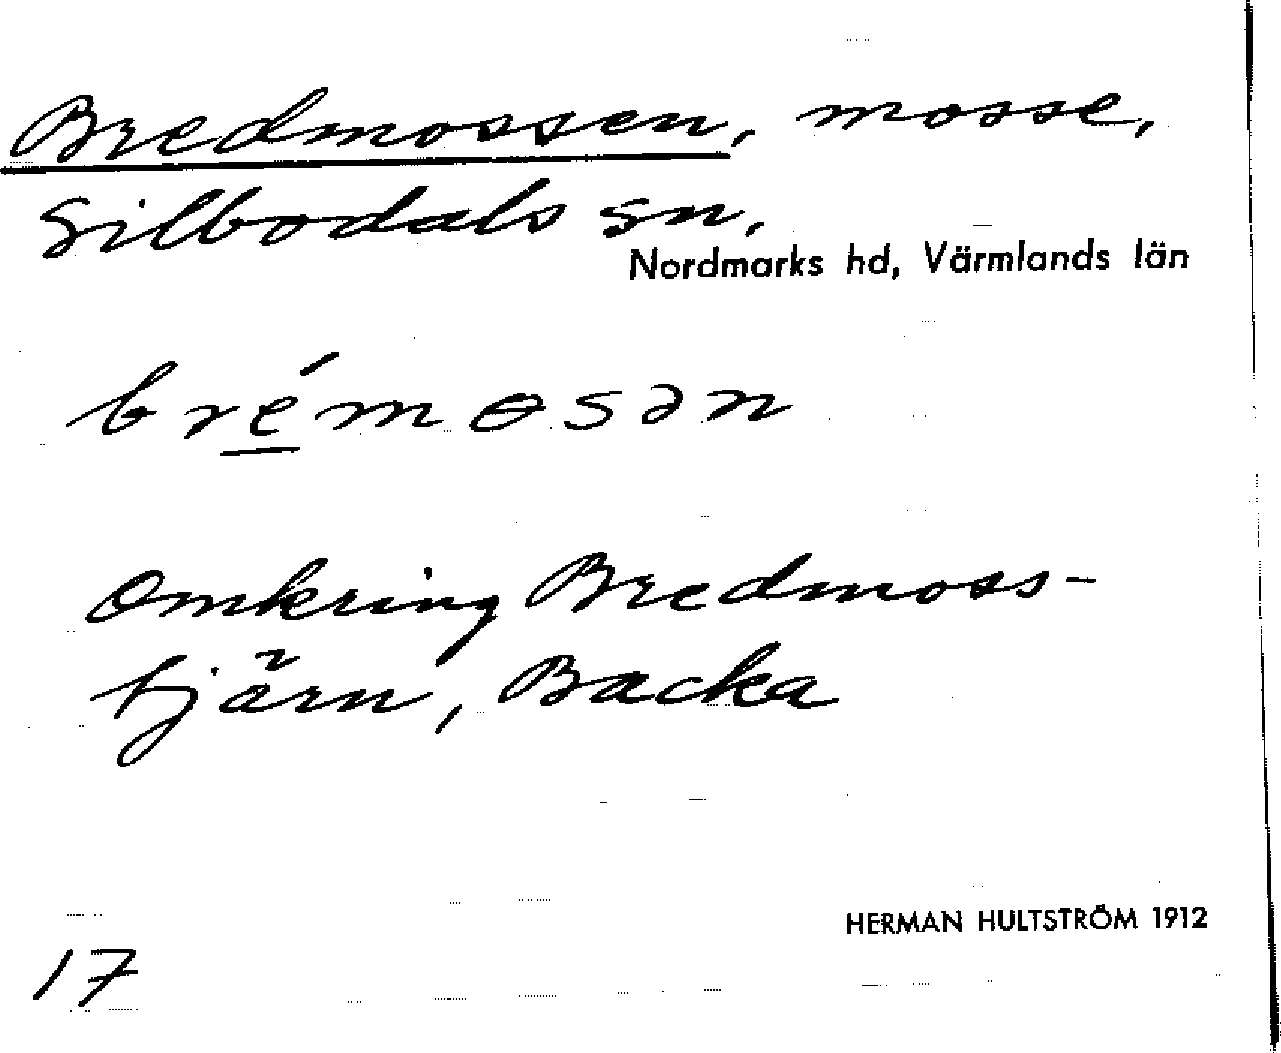 Bredmossen, mosse,
Silbodals sn,
Nordmarks hd, Värmlands län
brémɵsən
Omkring Bredmoss-
tjärn, Backa
HERMAN HULTSTRÖM 1912
17